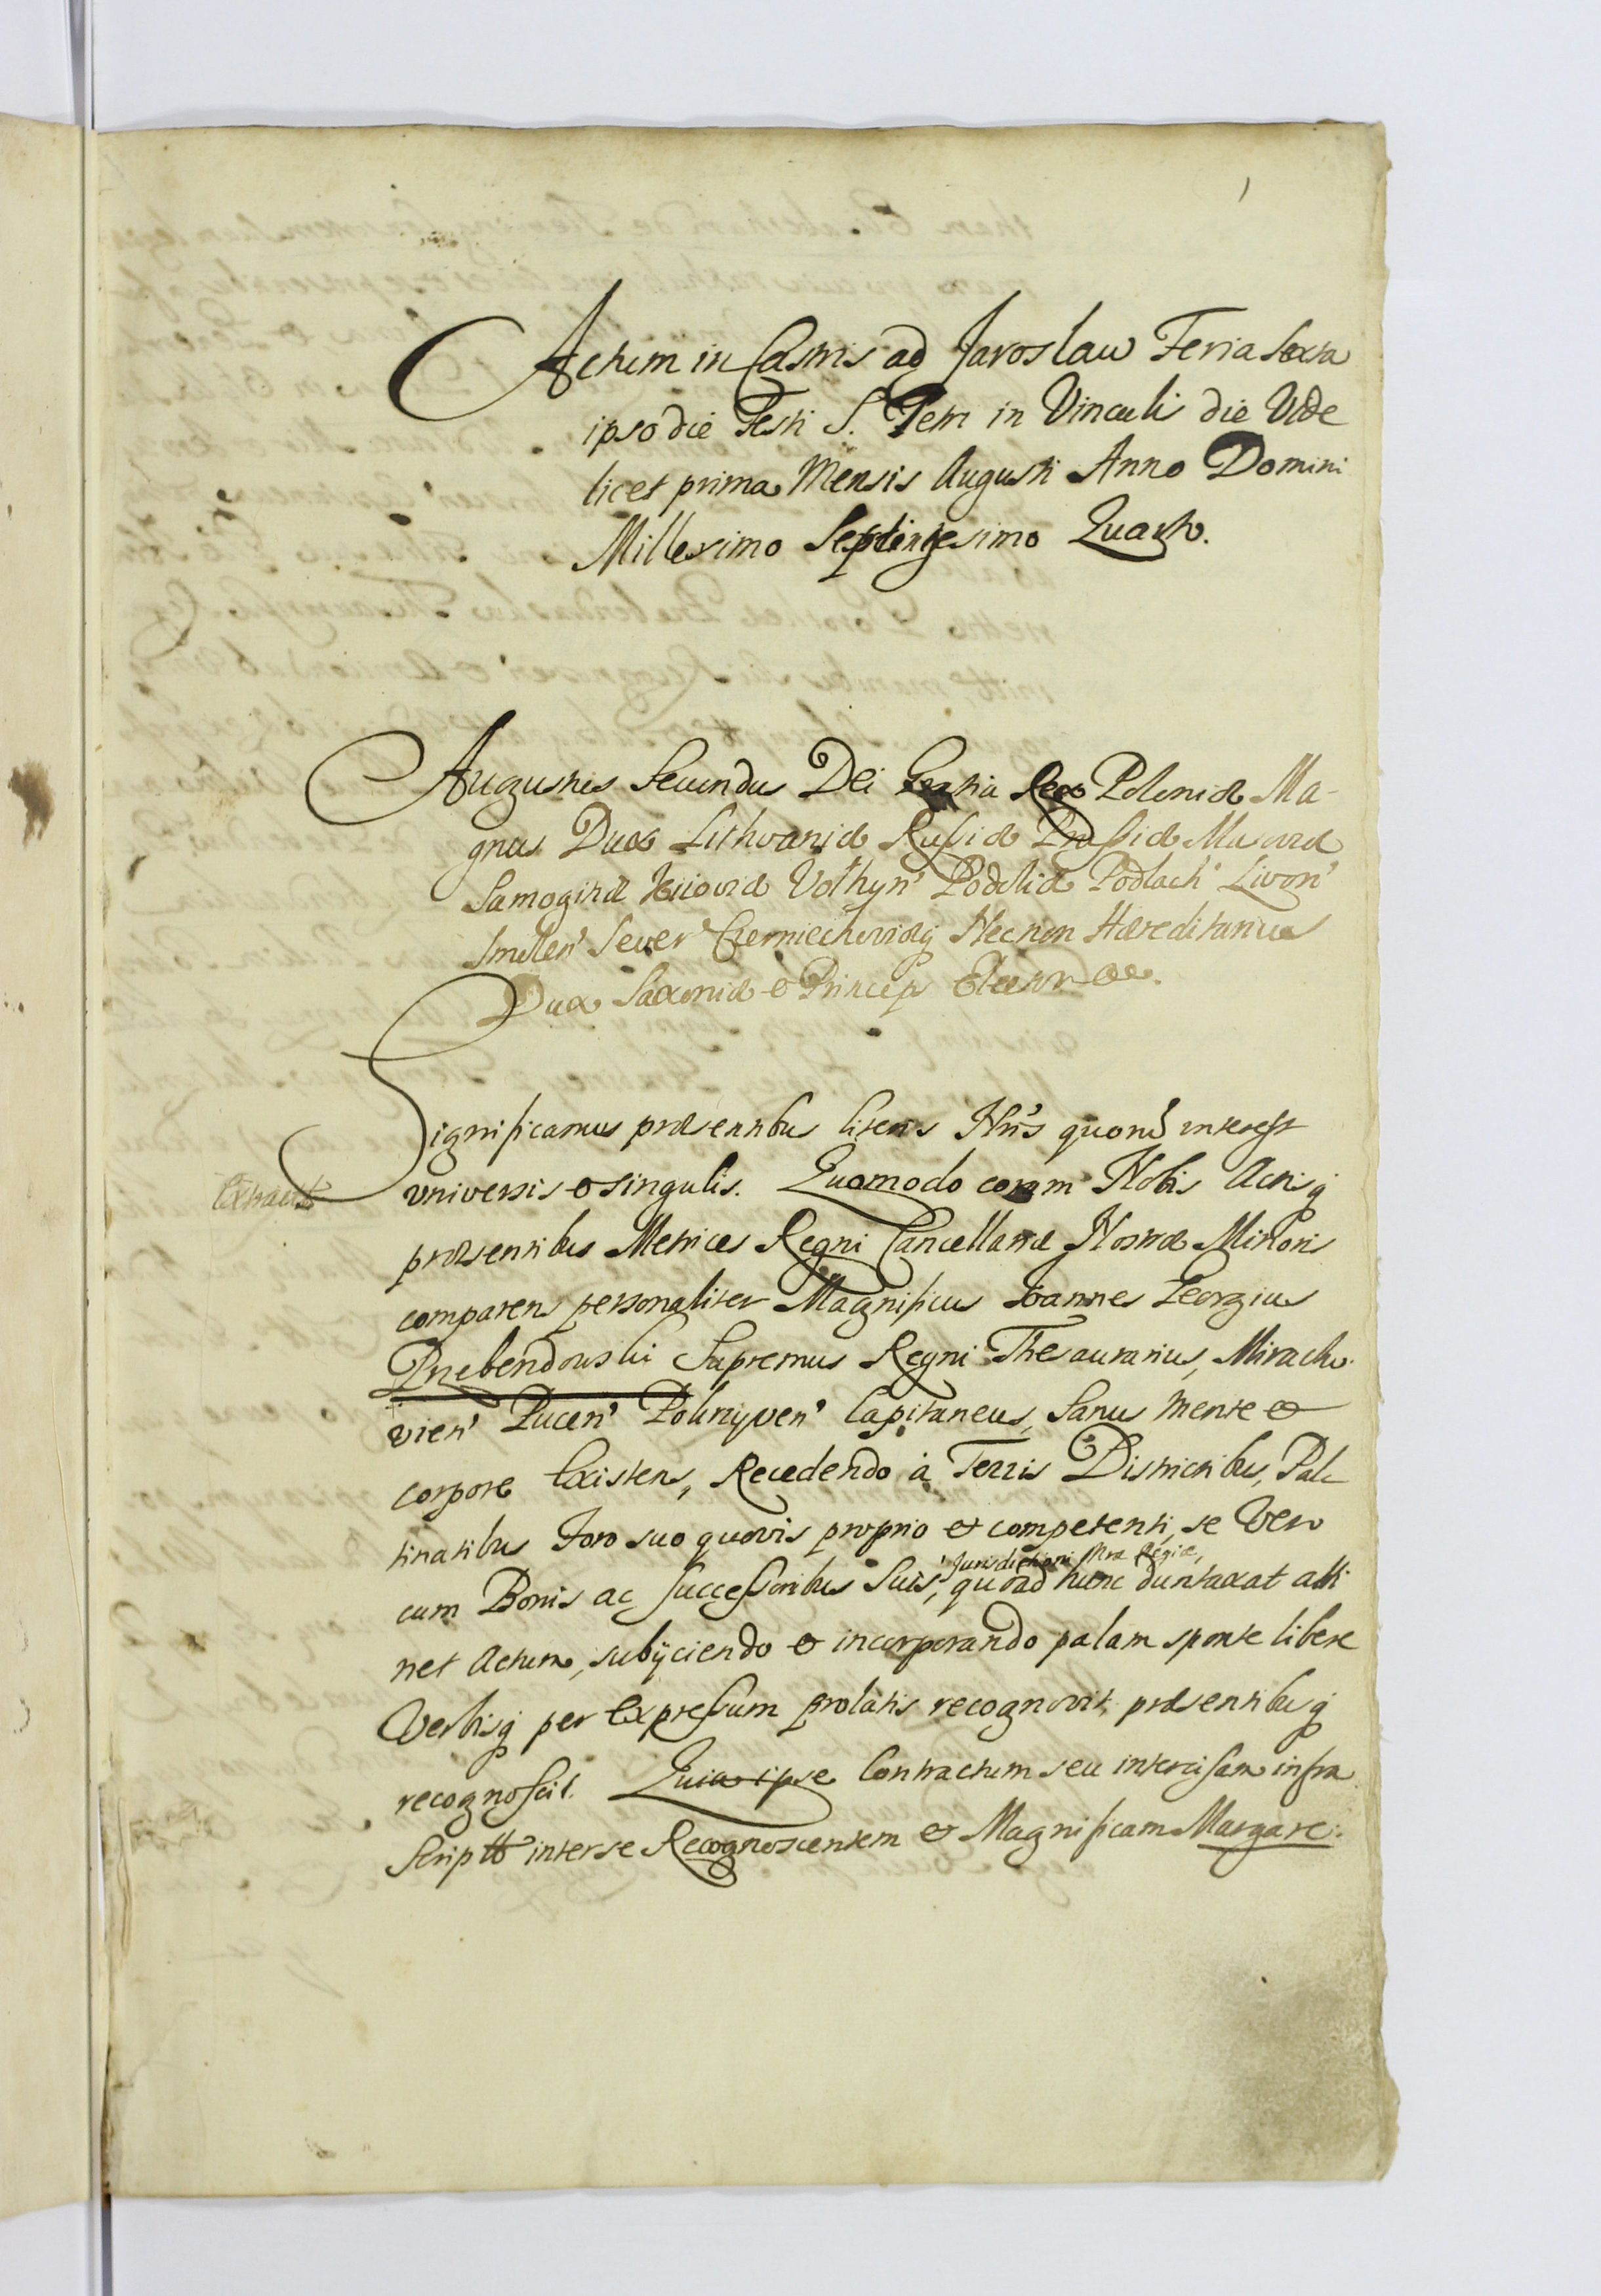 1
Actum in Castris ad Jaroslaw Feria Sexta
ipso die Festi S. Petri in Vinculi die Vide
licet prima Mensis Augusti Anno Domini
Millesimo Septingesimo Quarto.
Augustus Secundus Dei Gratia Rex Poloniæ Ma-
gnus Dux Lithvaniæ Russiæ Prussiæ Masoviæ
Samogitiæ Kiioviæ Volhyn' Podoliæ Podlach' Livon'
Smolen' Sever' Czerniechoviæq Necnon Hæreditarius
Dux Saxoniæ & Princeps Elector &c.
Significamus præsentibus literis Nris quorũ interest
Extract
vniversis & singulis. Quomodo coram Nobis Actisq
præsentibus Metrices Regni Cancellariæ Nostræ Minoris
comparens personaliter Magnificus Joannes Georgius
Przebendowski Supremus Regni Thesaurarius, Miracho-
vien' Pucen' Polnyven' Capitaneus, Sanus mente &
corpore Existens, Recedendo à Terris Districtibus, Pala
tinatibus Foro suo quovis proprio et competenti, se Vero
Jurisdictioni Nræ Regiæ,
cum Bonis ac Successoribus Suis, quoad hunc duntaxat atti
net Actum, subijciendo & incorporando palam sponte libere
Verbisq per Expressum prolatis recognovit, præsentibusq
recognoscit. Quia ipse Contractum seu intercisam infra
Scriptt inter se Recognoscentem & Magnificam Margare-